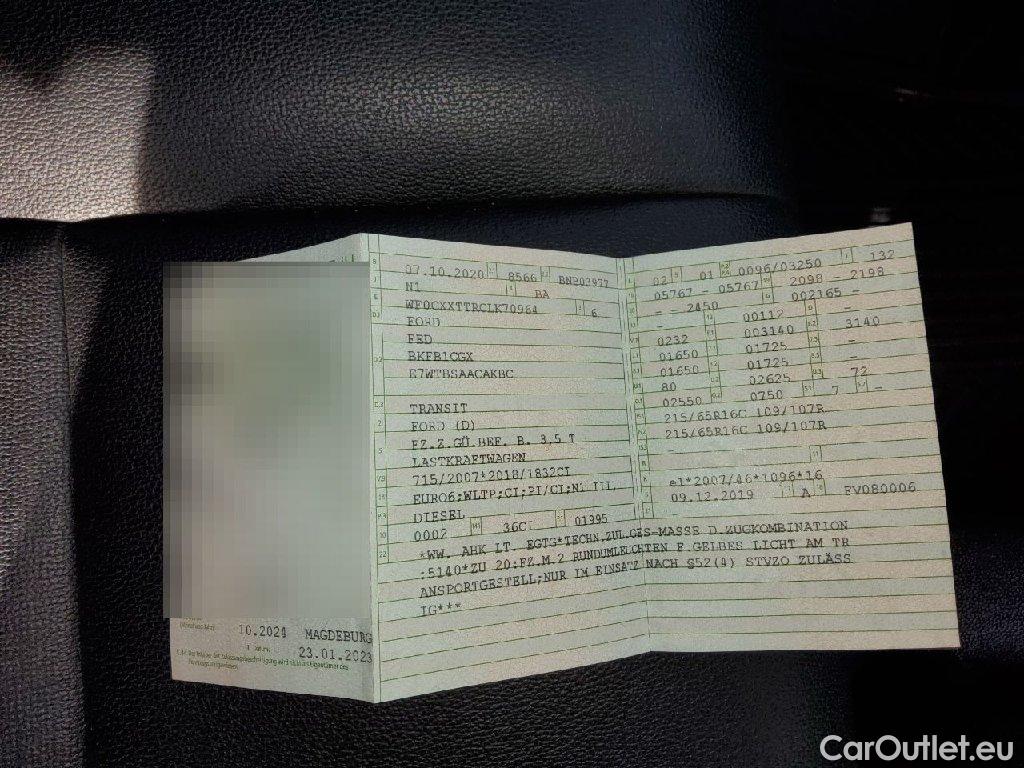 07.10.2020 8566
N1 BA
WF0CXXTTRCLK70964 6
FORD
FED
BKFB1CGX
TRANSIT
FORD (D)
FZ.Z.GÜ.BEF. B. 3,5 T
LASTKRAFTWAGEN
715/2007*2018/1832CI
EURO6;WLTP;CI;PI/CI;N1 III
DIESEL
0002 36CI 01995
02 01 0096/03250 132
05767 - 05767 2098 - 2198
- - 2450 002165 -
- 00112 -
0232 003140 3140
01650 01725 -
01650 01725 -
80 02625 72
02550 0750 7 -
215/65R16C 109/107R
215/65R16C 109/107R
-
e1*2007/46*1096*16
09.12.2019 A FV080006
*WW. AHK LT. EGTG*TECHN.ZUL.GES-MASSE D.ZUGKOMBINATION
:5140*ZU 20:FZ.M.2 RUNDUMLEUCHTEN F.GELBES LICHT AM TR
ANSPORTGESTELL;NUR IM EINSATZ NACH §52(4) STVZO ZULÄSS
IG***
10.2024 MAGDEBURG
23.01.2023
CarOutlet.eu